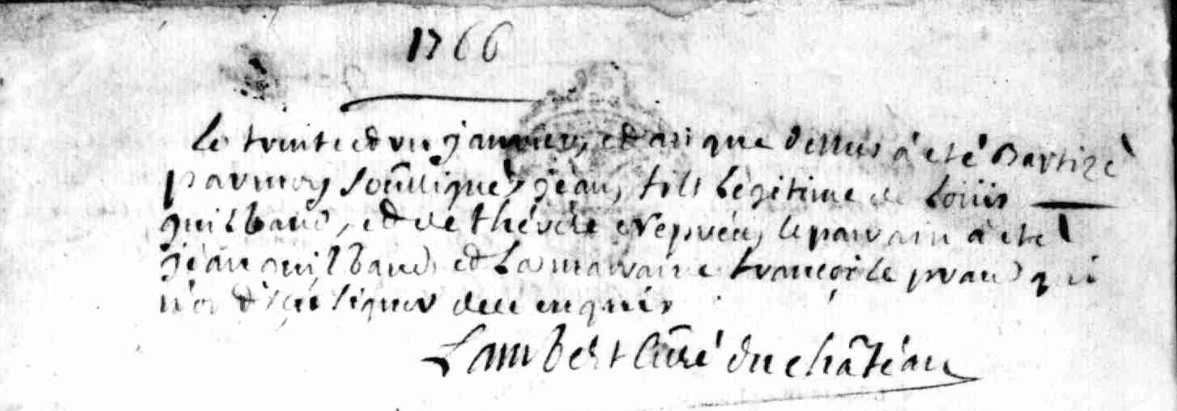 1766
Le trente et un janvier, et an que dessus à été Baptizé
par moy soussigné, jean, fils Légitime de Loüis
guilbaud, et de thérése le parain à été
jean guilbaud, et La maraine françoise qui
n'ont sçu signer de ce enquis
Lambert Curé du château